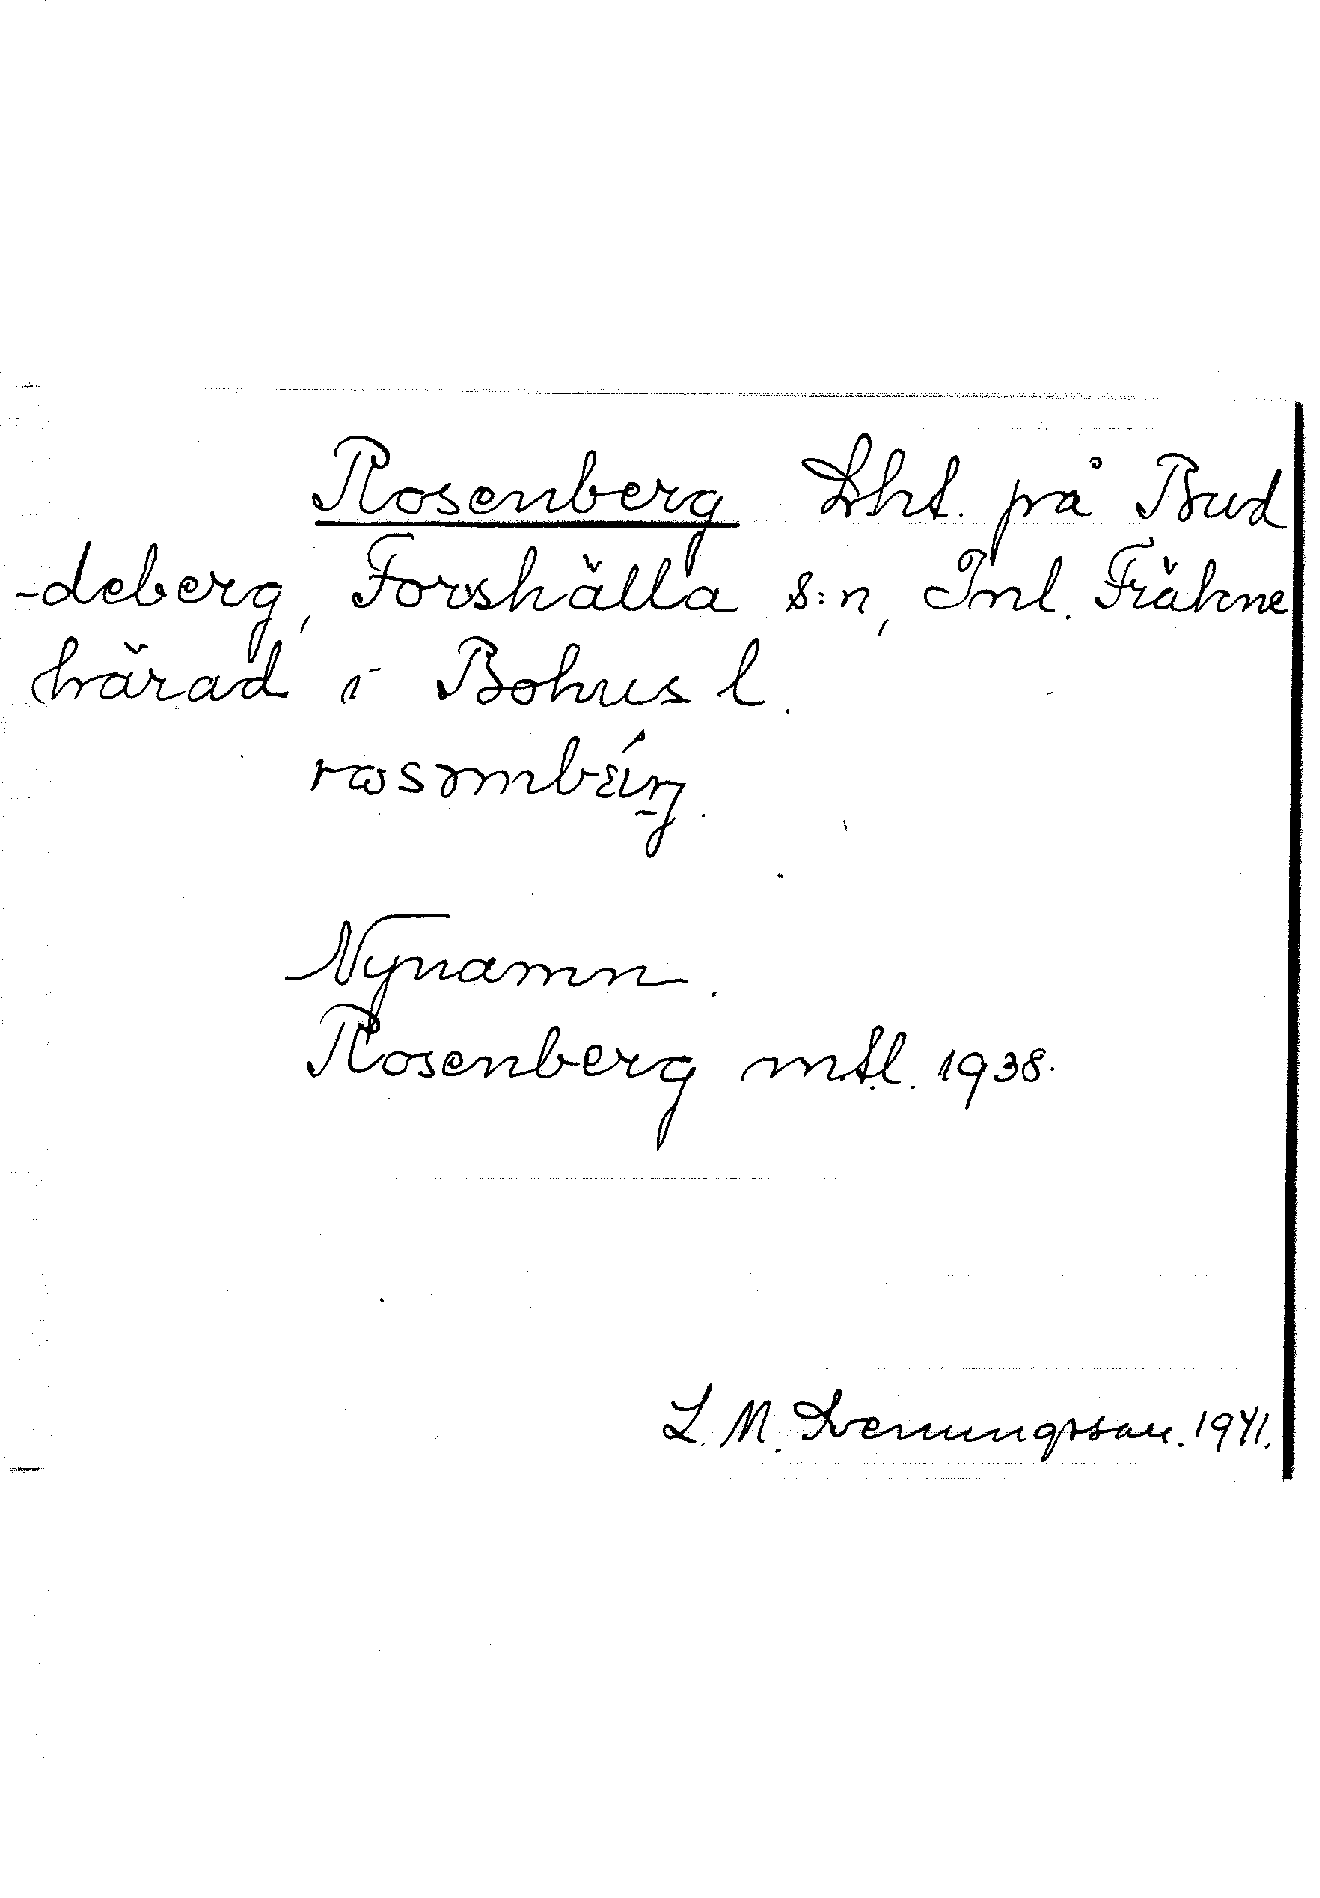 Rosenberg Lht. på Bud
-deberg, Forshälla s:n, Inl. Fräkne
härad i Bohus l.
Nynamn.
Rosenberg mtl. 1938.
L. M. 1941.